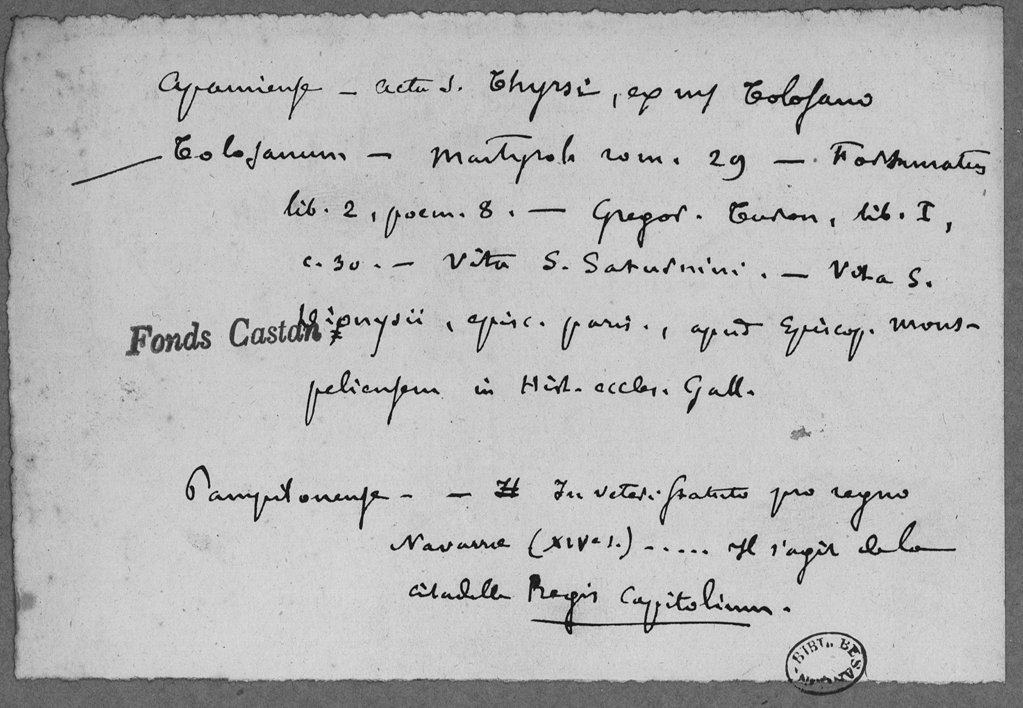 Apamiense — acta S. Thyrsi, ex ms Tolosano
Tolosanum — Martyrol. rom. 29 — Fortunatus
lib. 2, poem. 8. — Gregor. Turon, lib. I,
c. 30. — Vita S. Saturnini. — Vita S.
Dionysii, episc. paris., apud Episcop. Mons-
Fonds Castan
peliensem in Hist. eccles. Gall.
Pampilonense - - In veteri statuto pro regno
Navarræ (XIVe s.) ..... Il s'agit de la
citadelle Regis Cappitolium.
BIBL. BESANÇON